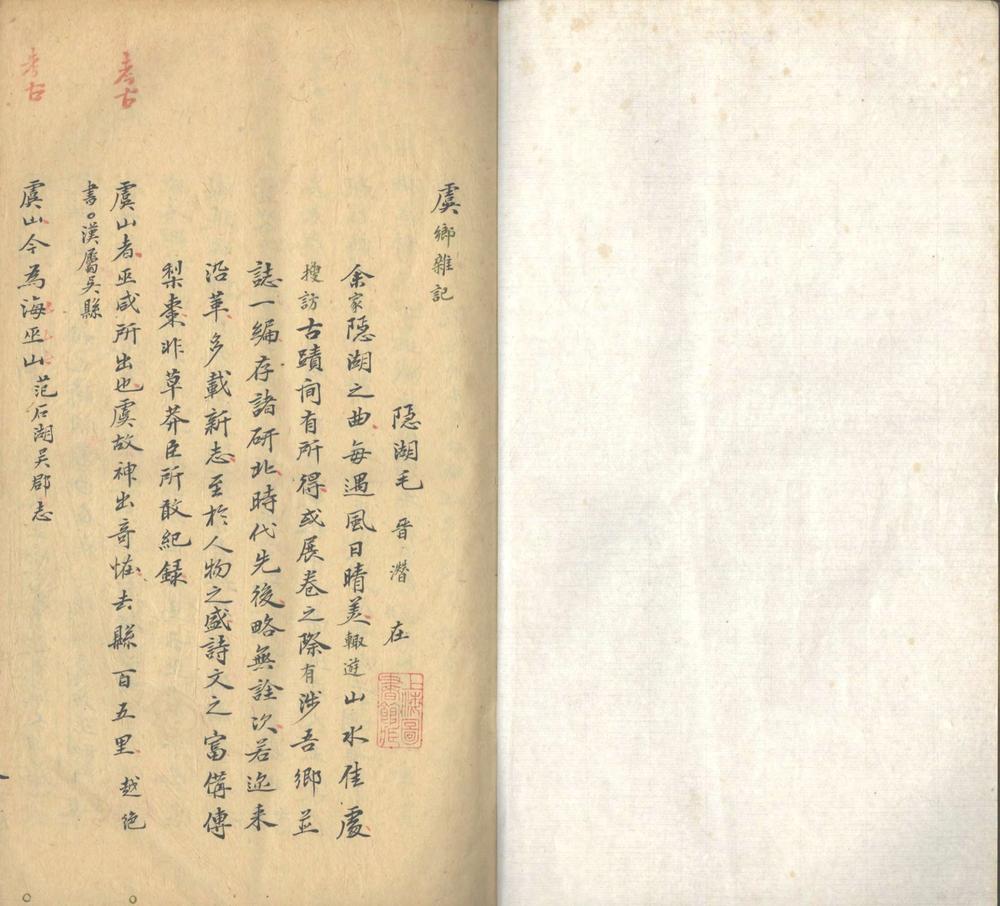 虞鄉雜記
隱湖毛晉潛在
余家隱湖之曲每遇風日晴美輙遊山水佳處
搜訪古蹟間有所得或展卷之際有涉吾鄉並
誌一編存諸研北時代先後略無詮次若迩来
沿革多載新志至於人物之盛詩文之富備傳
梨棗非草莽臣所敢紀錄
虞山者巫咸所出也虞故神出竒恠去縣百五里越絶
書。漢屬吳縣
虞山今為海巫山范石湖吳郡志
考古
考古
上海圖
書館藏